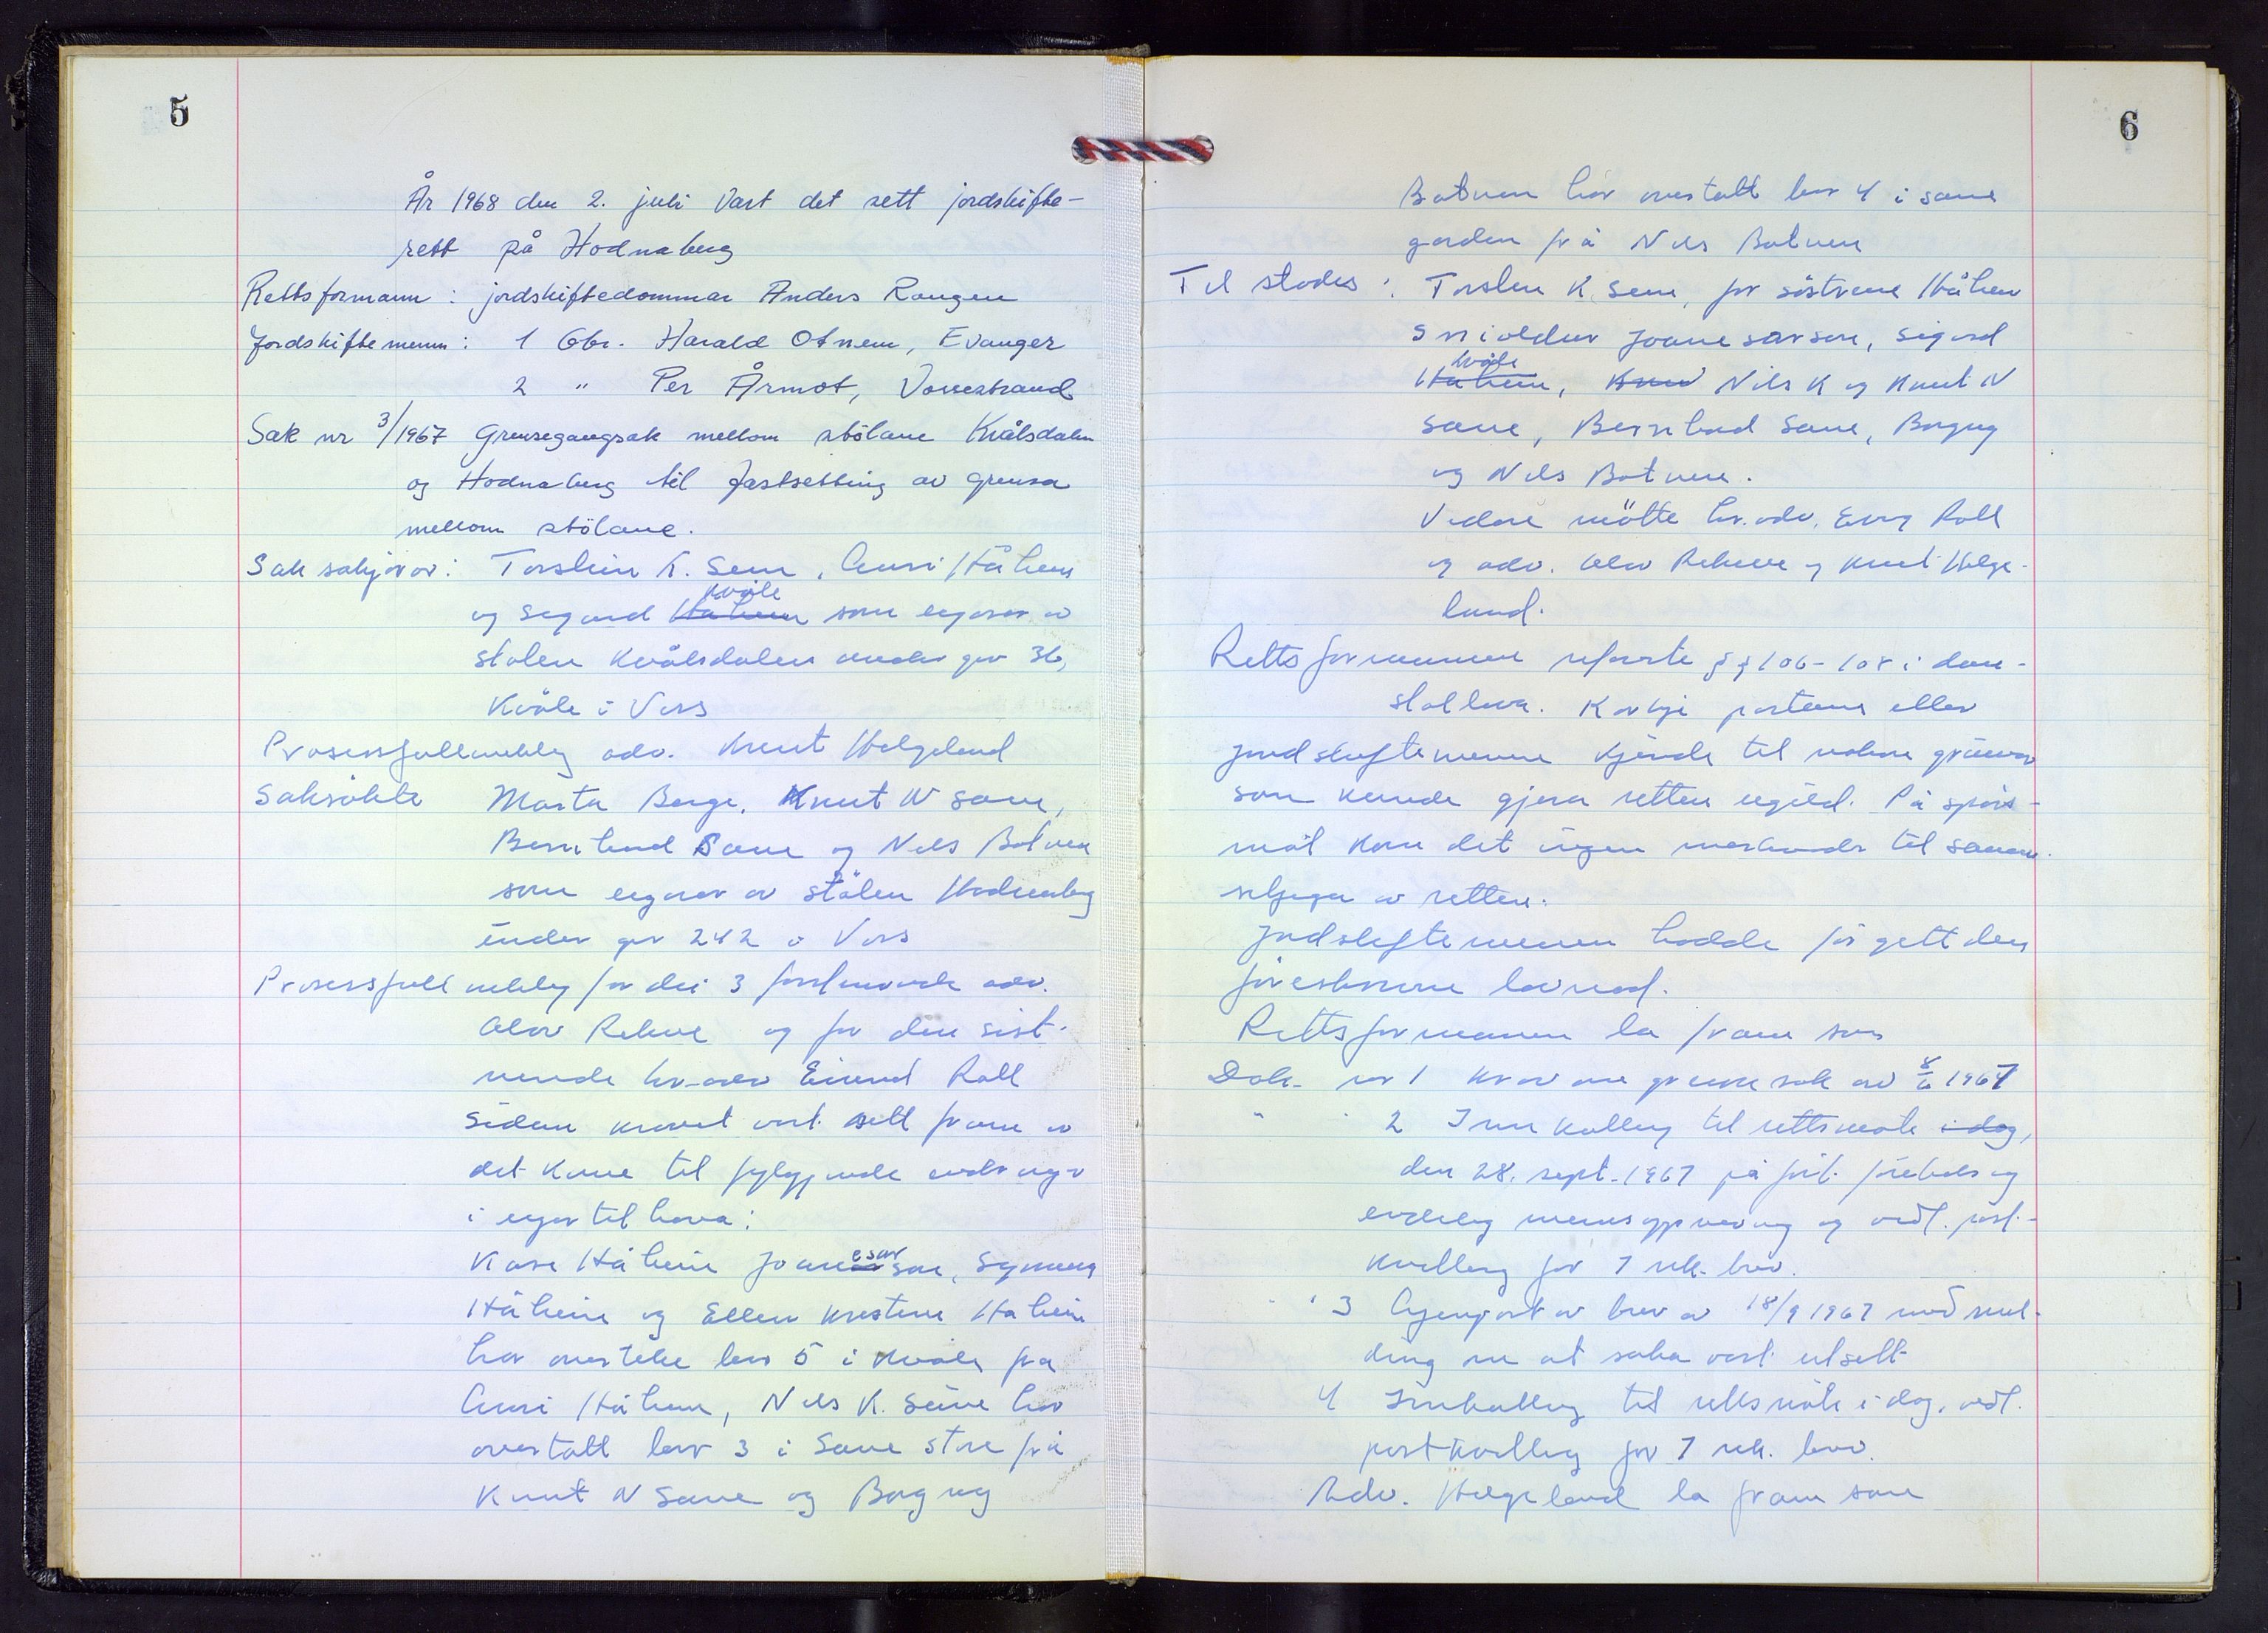 5
År 1968 den 2. juli vart det sett jordskifte-
rett på Hodnaberg
Rettsformann: jordskiftedommar Anders Rongen
Jordskiftemenn: 1 Gbr. Harald Otnem, Evanger
2 " Per Årmot, Vossestrand
Sak nr 3/1967 Grensegangsak mellom stölane Kvålsdalen
og Hodnaberg til fastsetting av grensa
mellom stölane.
Saksøkjarar: Torstein K. Sem, Anni Håheim
og Sigurd Håheim Kvåle som eigarar av
stølen Kvålsdalen under gnr 36,
Kvåle i Voss
Prosessfullmektig adv. Knut Helgeland
Saksökte Marta Berge, Knut N Saue,
Berntend Saue og Nils Botnen
som eigarar av stölen Hodnaberg
under gnr 242 i Voss
Prosessfullmektig for dei 3 förstnemnde adv.
Olav Rekve og for den sist-
nemnde hr.adv Eivind Roll
Sidan kravet vart sett fram er
det kome til fylgjande endringar
i eigartilhøva:
Kari Håheim Joanesarson, Synneva
Håheim og Ellen Kristine Håheim
har overteke bnr 5 i Kvåle frå
Anni Håheim, Nils K. Saue har
overtatt bnr 3 i Saue store frå
Knut N Saue og Borgny
6
Botnen har overtatt bnr 4 i same
garden frå Nils Botnen
Til stades: Torstein K. Sem, for söstrene Håheim
Joanesarson, Sigurd
Håheim Kvåle, Knud Nils K og Knut N
Saue, Berntend Saue, Borgny
og Nils Botnen.
Vidare mötte hr.adv. Eiv. Roll
og adv. Olav Rekve og Knut Helge-
land.
Rettsformannen refererte §§ 106-108 i dom-
stollova. Korkje partane eller
jordskiftemennene kjende til nokon grunn
som kunde gjera retten ugild. På spörs-
mål kom det ingen merknader til saman-
setjinga av retten.
Jordskiftemennene hadde för gett den
föreskrivne lovnad.
Rettsformannen la fram som
Dok. nr 1 Krav om grensesak av 8/6 1967
" " 2 Innkalling til rettsmöte i dag,
den 28. sept. 1967 på fört. förebels og
endeleg mannsoppnemning og vedl. post-
kvittering for 7 rek. brev.
" " 3 Gjenpart av brev av 18/9 1967 med mel-
ding om at saka vart utsett
4 Innkalling til rettsmöte i dag, vedl.
postkvittering for 7 rek. brev.
Adv. Helgeland la fram som